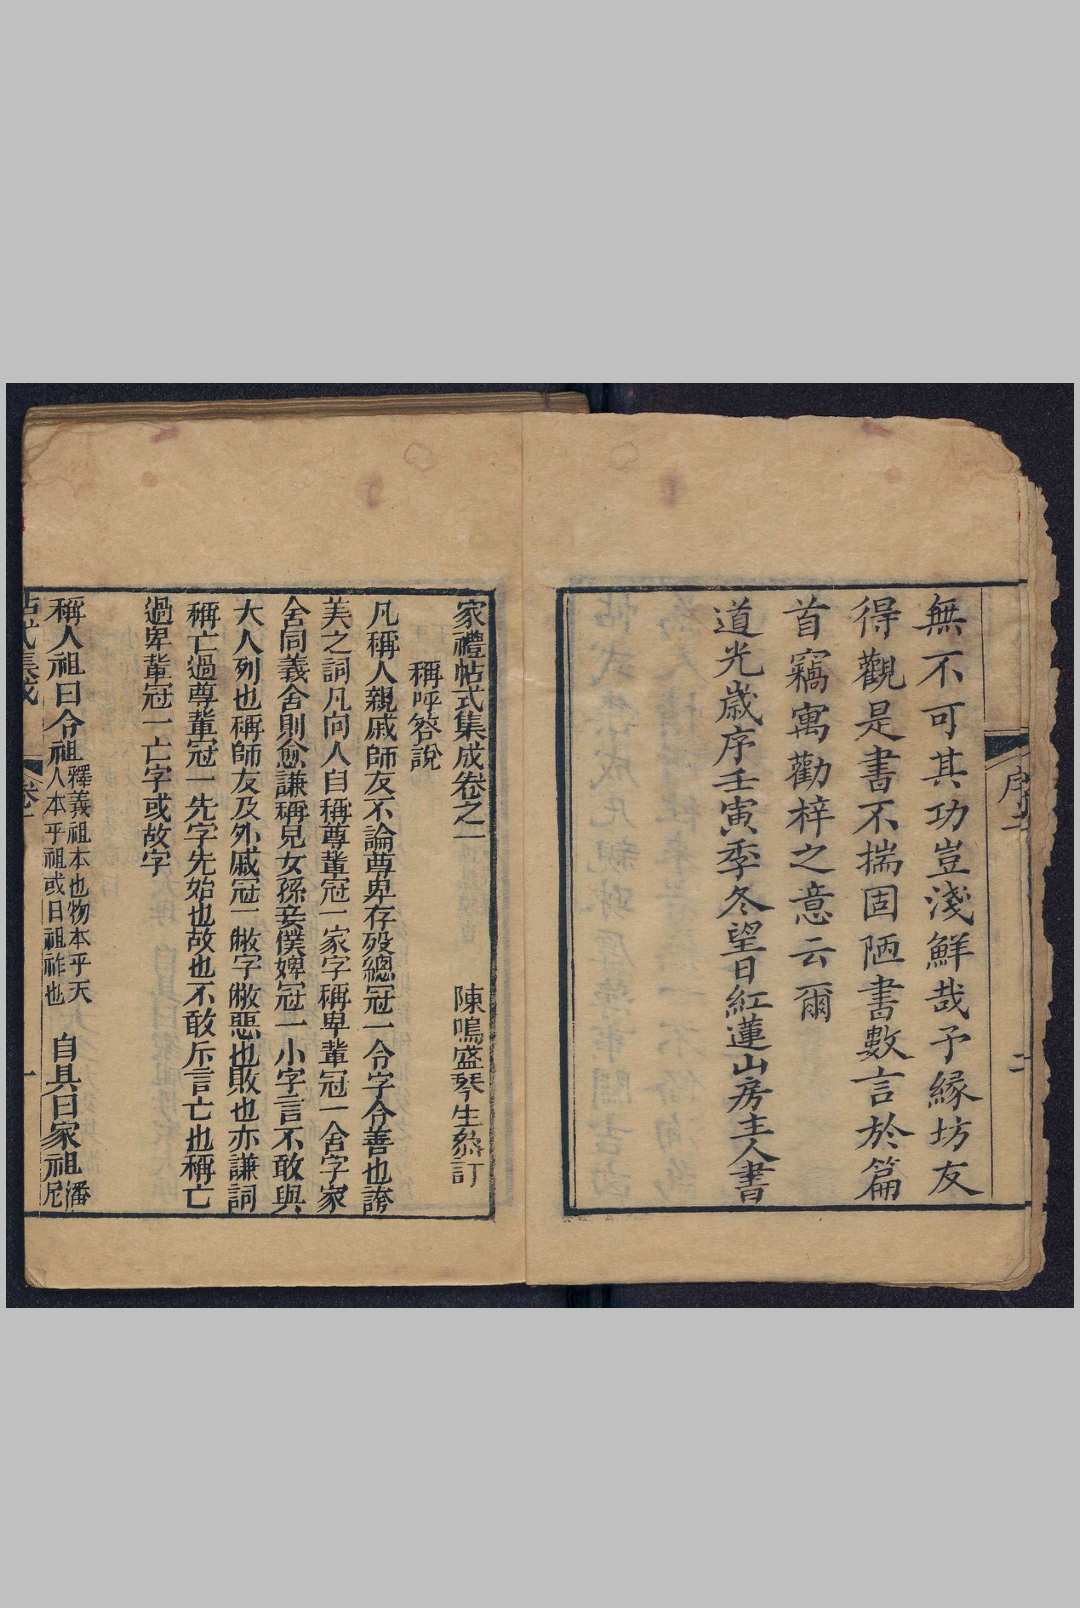 序
二
無不可其功豈淺鮮哉予緣坊友
得觀是書不揣固陋書數言於篇
首竊寓勸梓之意云爾
道光歲序壬寅季冬望日紅蓮山房主人書
家禮帖式集成卷之一
陳鳴盛琴生叅訂
稱呼答說
凡稱人親戚師友不論尊卑存歿總冠一令字令善也誇
美之詞凡向人自稱尊輩冠一家字稱卑輩冠一舍字家
舍同義舍則愈謙稱兒女孫妾僕婢冠一小字言不敢與
大人列也稱師友及外戚冠一敝字敝惡也敗也亦謙詞
稱亡過尊輩冠一先字先始也故也不敢斥言亡也稱亡
過卑輩冠一亡字或故字
稱人祖曰令祖
釋義祖本也物本乎天
人本乎祖或曰祖祚也
自具曰家祖
帖式集成
卷一
一